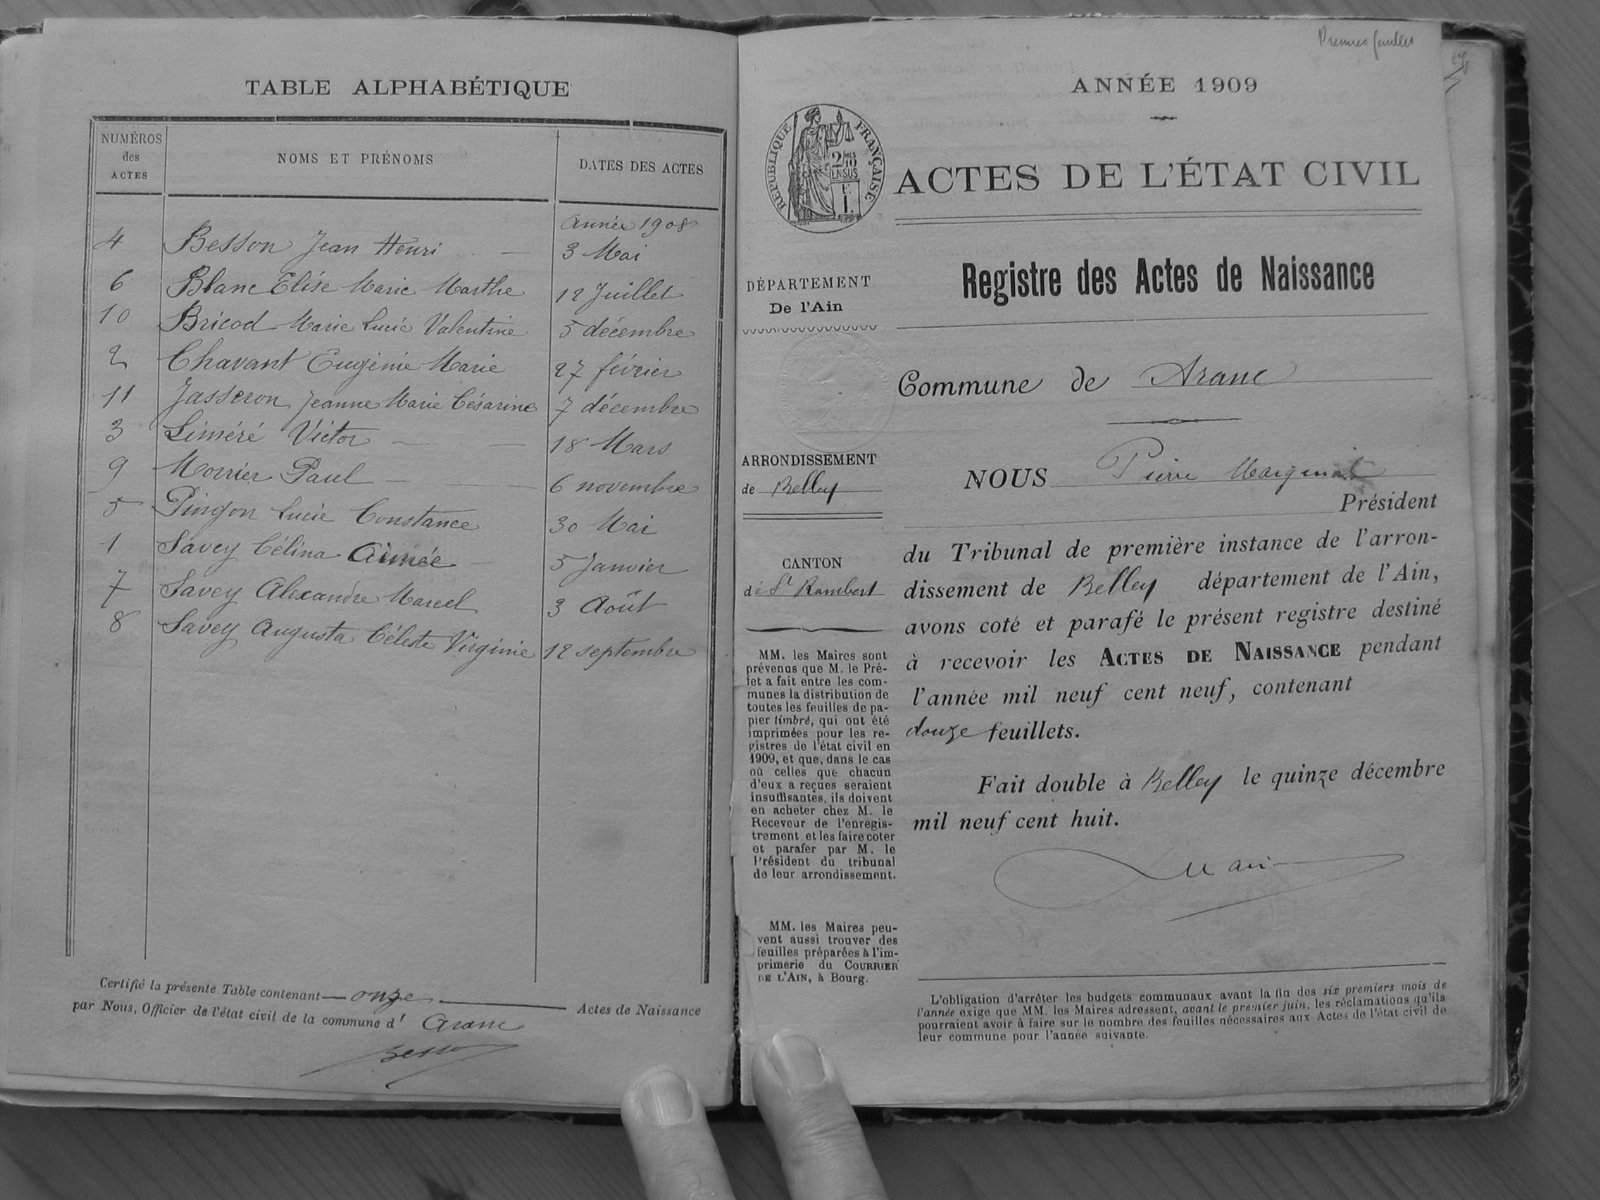 TABLE ALPHABÉTIQUE
NUMÉROS
des
ACTES
NOMS ET PRÉNOMS
DATES DES ACTES
Année 1908
4 Besson Jean Henri 3 Mai
6 Blanc Elise Marie Marthe 12 Juillet
10 Bricod Marie Lucie Valentine 5 décembre
2 Chavant Eugénie Marie 27 février
11 Jasseron Jeanne Marie Césarine 7 décembre
3 Liméré Victor 18 Mars
9 Morrier Paul 6 novembre
5 Pingon Lucie Constance 30 Mai
1 Savey Célina Aimée 5 Janvier
7 Savey Alexandre Marcel 3 Août
8 Savey Augusta Céleste Virginie 12 septembre
Certifié la présente Table contenant onze Actes de Naissance
par Nous, Officier de l'état civil de la commune d' Aranc
Premier feuillet
ANNÉE 1909
RÉPUBLIQUE FRANÇAISE
ACTES DE L'ÉTAT CIVIL
DÉPARTEMENT
De l'Ain
Registre des Actes de Naissance
Commune de Aranc
ARRONDISSEMENT
de Belley
CANTON
de St Rambert
MM. les Maires sont
prévenus que M. le Pré-
fet a fait entre les com-
munes la distribution de
toutes les feuilles de pa-
pier timbré, qui ont été
imprimées pour les re-
gistres de l'état civil en
1909, et que, dans le cas
où celles que chacun
d'eux a reçues seraient
insuffisantes, ils doivent
en acheter chez M. le
Receveur de l'enregis-
trement et les faire coter
et parafer par M. le
Président du tribunal
de leur arrondissement.
MM. les Maires peu-
vent aussi trouver des
feuilles préparées à l'im-
primerie du COURRIER
DE L'AIN, à Bourg.
NOUS Pierre
Président
du Tribunal de première instance de l'arron-
dissement de Belley département de l'Ain,
avons coté et parafé le présent registre destiné
à recevoir les ACTES DE NAISSANCE pendant
l'année mil neuf cent neuf, contenant
douze feuillets.
Fait double à Belley le quinze décembre
mil neuf cent huit.
L'obligation d'arrêter les budgets communaux avant la fin des six premiers mois de
l'année exige que MM. les Maires adressent, avant le premier juin, les réclamations qu'ils
pourraient avoir à faire sur le nombre des feuilles nécessaires aux Actes de l'état civil de
leur commune pour l'année suivante.